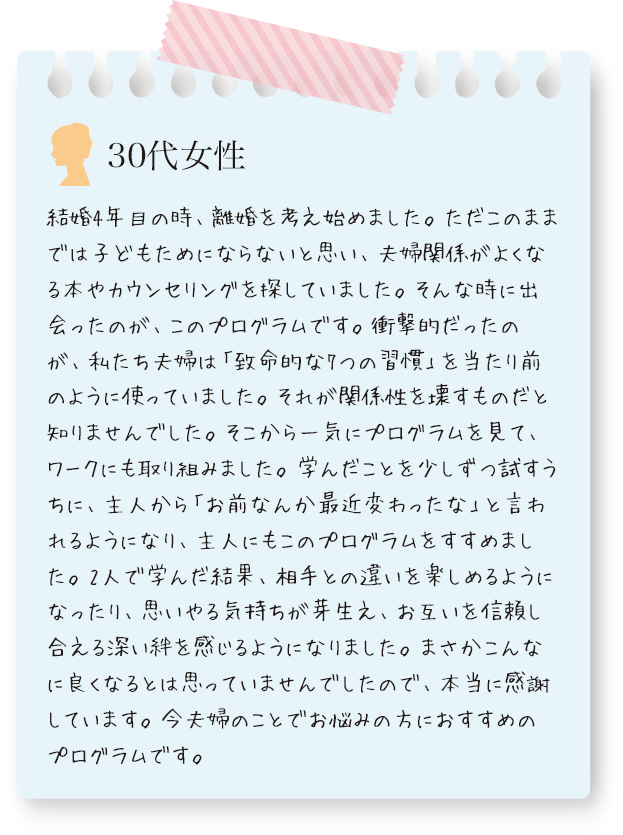 30代女性
結婚4年目の時、離婚を考え始めました。ただこのまま
では子どもためにならないと思い、夫婦関係がよくな
る本やカウンセリングを探していました。そんな時に出
会ったのが、このプログラムです。衝撃的だったの
が、私たち夫婦は「致命的な7つの習慣」を当たり前
のように使っていました。それが関係性を壊すものだと
知りませんでした。そこから一気にプログラムを見て、
ワークにも取り組みました。学んだことを少しずつ試すう
ちに、主人から「お前なんか最近変わったな」と言わ
れるようになり、主人にもこのプログラムをすすめまし
た。2人で学んだ結果、相手との違いを楽しめるように
なったり、思いやる気持ちが芽生え、お互いを信頼し
合える深い絆を感じるようになりました。まさかこんな
に良くなるとは思っていませんでしたので、本当に感謝
しています。今夫婦のことでお悩みの方におすすめの
プログラムです。